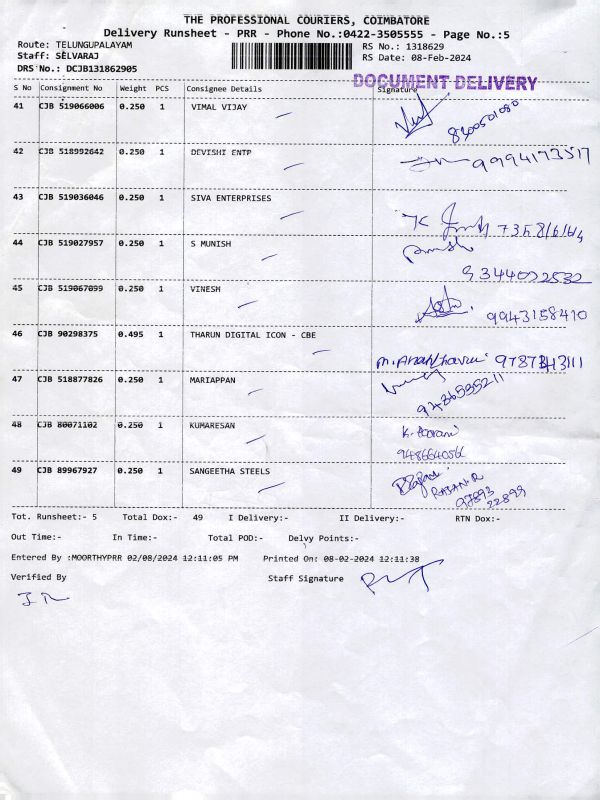 THE PROFESSIONAL COURIERS, COIMBATORE
Delivery Runsheet - PRR - Phone No.:0422-3505555 - Page No.:5
Route: TELUNGUPALAYAM RS No.: 1318629
Staff: SELVARAJ RS Date: 08-Feb-2024
DRS No.: DCJB131862905
DOCUMENT DELIVERY
S No Consignment No Weight PCS Consignee Details Signature
41 CJB 519066006 0.250 1 VIMAL VIJAY
42 CJB 518992642 0.250 1 DEVISHI ENTP
9994173517
43 CJB 519036046 0.250 1 SIVA ENTERPRISES
44 CJB 519027957 0.250 1 S MUNISH
9344092532
45 CJB 519067099 0.250 1 VINESH
9943158410
46 CJB 90298375 0.495 1 THARUN DIGITAL ICON - CBE
9787343111
47 CJB 518877826 0.250 1 MARIAPPAN
9486535211
48 CJB 80071102 0.250 1 KUMARESAN
49 CJB 89967927 0.250 1 SANGEETHA STEELS
RAJAN.R
97893
22899
Tot. Runsheet:- 5 Total Dox:- 49 I Delivery:- II Delivery:- RTN Dox:-
Out Time:- In Time:- Total POD:- Delvy Points:-
Entered By :MOORTHYPRR 02/08/2024 12:11:05 PM Printed On: 08-02-2024 12:11:38
Verified By Staff Signature